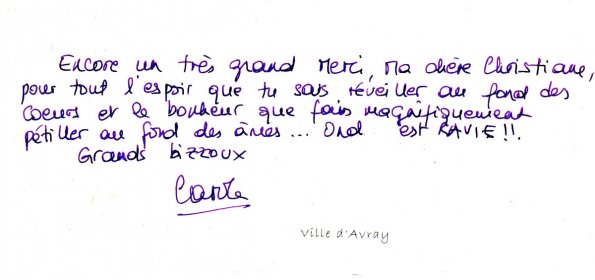 Encore un très grand Merci, Ma chère Christiane,
pour tout l'espoir que tu sais réveiller au fond des
coeurs et le bonheur que fais magnifiquement
pétiller au fond des âmes... est RAVIE !!
Grands bizzoux
Ville d'Avray